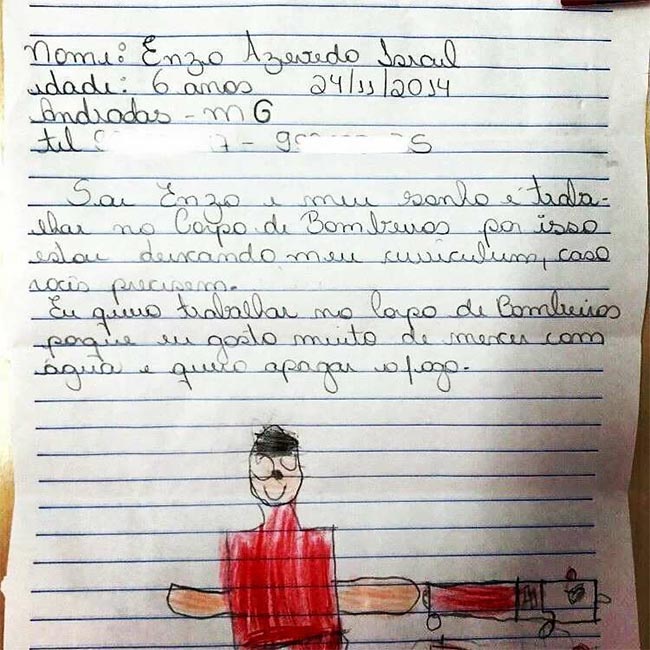 Nome: Enzo Azevedo Israel
idade: 6 anos 24/11/2014
Andradas - MG
tel 9 7 - 9 5
Sou Enzo e meu sonho é traba-
lhar no Corpo de Bombeiros por isso
estou deixando meu curriculum, caso
voceis precisem.
Eu quero trabalhar no Corpo de Bombeiros
poque eu gosto muito de mexer com
água e quero apagar o fogo.